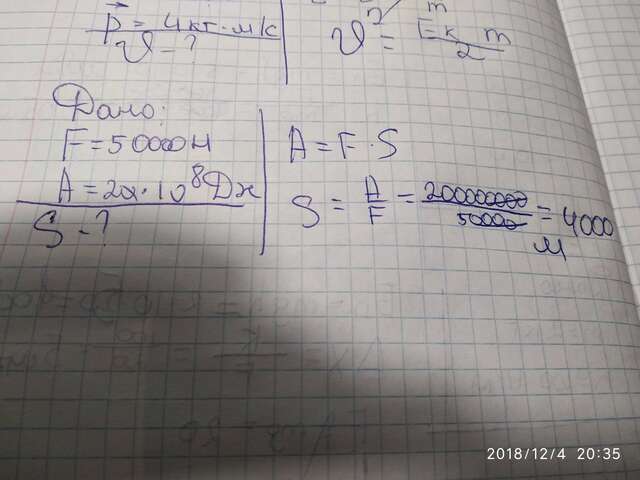 p = 4кг·м/с
v - ?
Дано:
F = 50000Н
A = 2х·10⁸Дж
S - ?
A = F · S
S = A/F = 200000000/50000 = 4000
м
2018/12/4 20:35